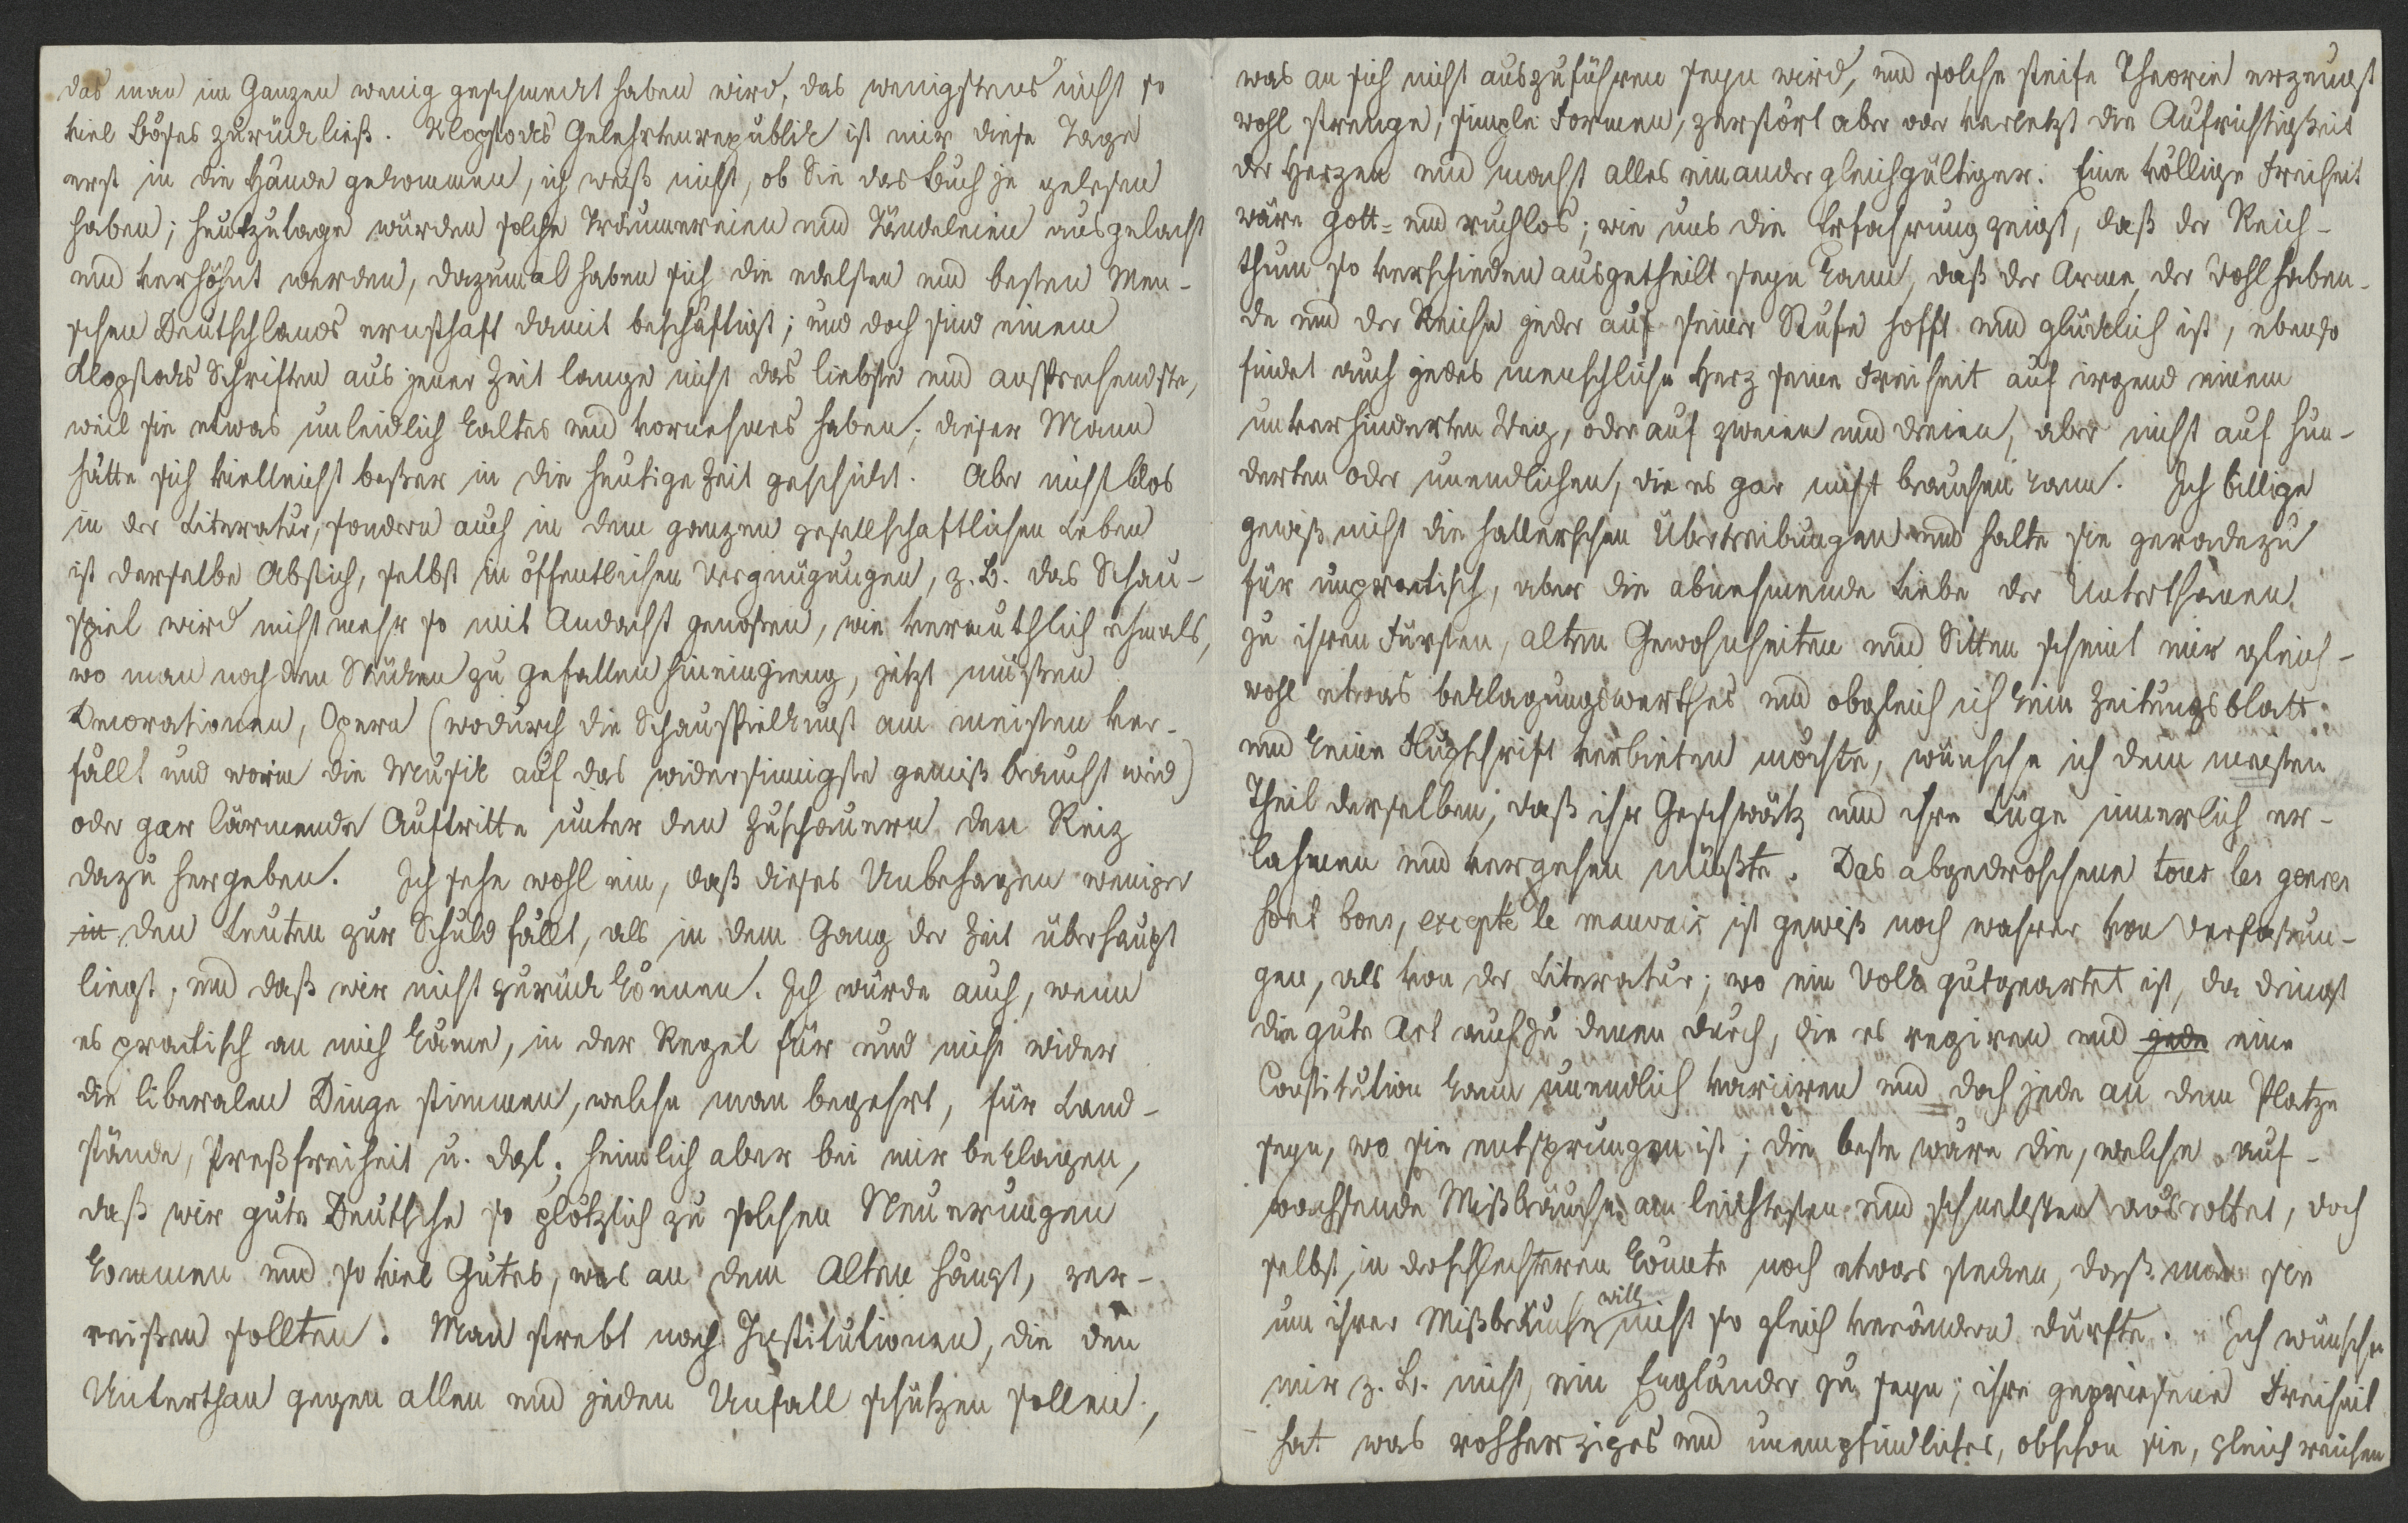 das man im Ganzen wenig geschmeckt haben wird, das wenigstens nicht so
viel Böses zurückließ. Klopstocks Gelehrtenrepublik ist mir diese Tage
erst in die Hände gekommen, ich weiß nicht, ob Sie das Buch je gelesen
haben; heutzutage würden solche Träumereien und Tändeleien ausgelacht
und verhöhnt werden, dazumal haben sich die edelsten und besten Men-
schen Deutschlands ernsthaft damit beschäftigt; und doch sind einem
Klopstocks Schriften aus jener Zeit lange nicht das liebste und ansprechendste,
weil sie etwas unleidlich kaltes und vornehmes haben; dieser Mann
hätte sich vielleicht beßer in die heutige Zeit geschickt. Aber nicht blos
in der Literatur, sondern auch in dem ganzen gesellschaftlichen Leben
ist derselbe Abstich, selbst in öffentlichen Vergnügungen, z. B. das Schau-
spiel wird nicht mehr so mit Andacht genoßen, wie vermuthlich ehmals,
wo man noch den Stücken zu gefallen hineingieng, jetzt müßen
Decorationen, Opern (wodurch die Schauspielkunst am meisten ver-
fällt und worin die Musik auf das widersinnigste gemißbraucht wird)
oder gar lärmende Auftritte unter den Zuschauern den Reiz
dazu hergeben. Ich sehe wohl ein, daß dieses Unbehagen weniger
in den Leuten zur Schuld fällt, als in dem Gang der Zeit überhaupt
liegt, und daß wir nicht zurück können. Ich würde auch, wenn
es practisch an mich käme, in der Regel für und nicht wider
die liberalen Dinge stimmen, welche man begehrt, für Land-
stände, Preßfreiheit u. dgl. heimlich aber bei mir beklagen,
daß wir gute Deutsche so plötzlich zu solchen Neuerungen
kommen und so viel Gutes, was an dem Alten hängt, zer-
reißen sollten. Man strebt nach Institutionen, die den
Unterthan gegen allen und jeden Unfall schützen sollen,
was an sich nicht auszuführen seyn wird, und solche steife Theorie erzeugt
wohl strenge, simple Formen, zerstört aber oder verletzt die Aufrichtigkeit
der Herzen und macht alles einander gleichgültiger. Eine völlige Freiheit
wäre gott- und ruchlos; wie uns die Erfahrung zeigt, daß der Reich-
thum so verschieden ausgetheilt seyn kann, daß der Arme, der Wohlhaben-
de und der Reiche jeder auf seiner Stufe hofft und glücklich ist, ebenso
findet auch jedes menschliche Herz seine Freiheit auf irgend einem
unverhinderten Weg, oder auf zweien und dreien, aber nicht auf hun-
derten oder unendlichen, die es gar nicht brauchen kann. Ich billige
gewiß nicht die hallerschen Übertreibungen und halte sie geradezu
für unpractisch, aber die abnehmende Liebe der Unterthanen
zu ihren Fürsten, alten Gewohnheiten und Sitten scheint mir gleich-
wohl etwas beklagungswerthes und obgleich ich kein Zeitungsblatt
und keine Flugschrift verbieten möchte, wünsche ich dem meisten
Theil derselben, daß ihr Geschwätz und ihre Lüge innerlich er-
lahmen und vergehen müßte. Das abgedroschene tous les genres
sont bons, excepté le mauvais ist gewiß noch wahrer von Verfaßun-
gen, als von der Literatur; wo ein Volk gutgeartet ist, da dringt
die gute Art auch zu denen durch, die es regiren und jede eine
Constitution kann unendlich variiren und doch jede an dem Platze
seyn, wo sie entsprungen ist; die beste wäre die, welche auf-
wachsende Mißbräuche am leichtesten und schnellsten ausrottet, doch
selbst in der schlechteren könnte noch etwas stecken, daß man sie
um ihrer Mißbräuche willen nicht so gleich verändern dürfte. Ich wünsche
mir z. B. nicht, ein Engländer zu seyn; ihre gepriesene Freiheit
hat was rohherziges und unempfindliches, obschon sie, gleich reichen